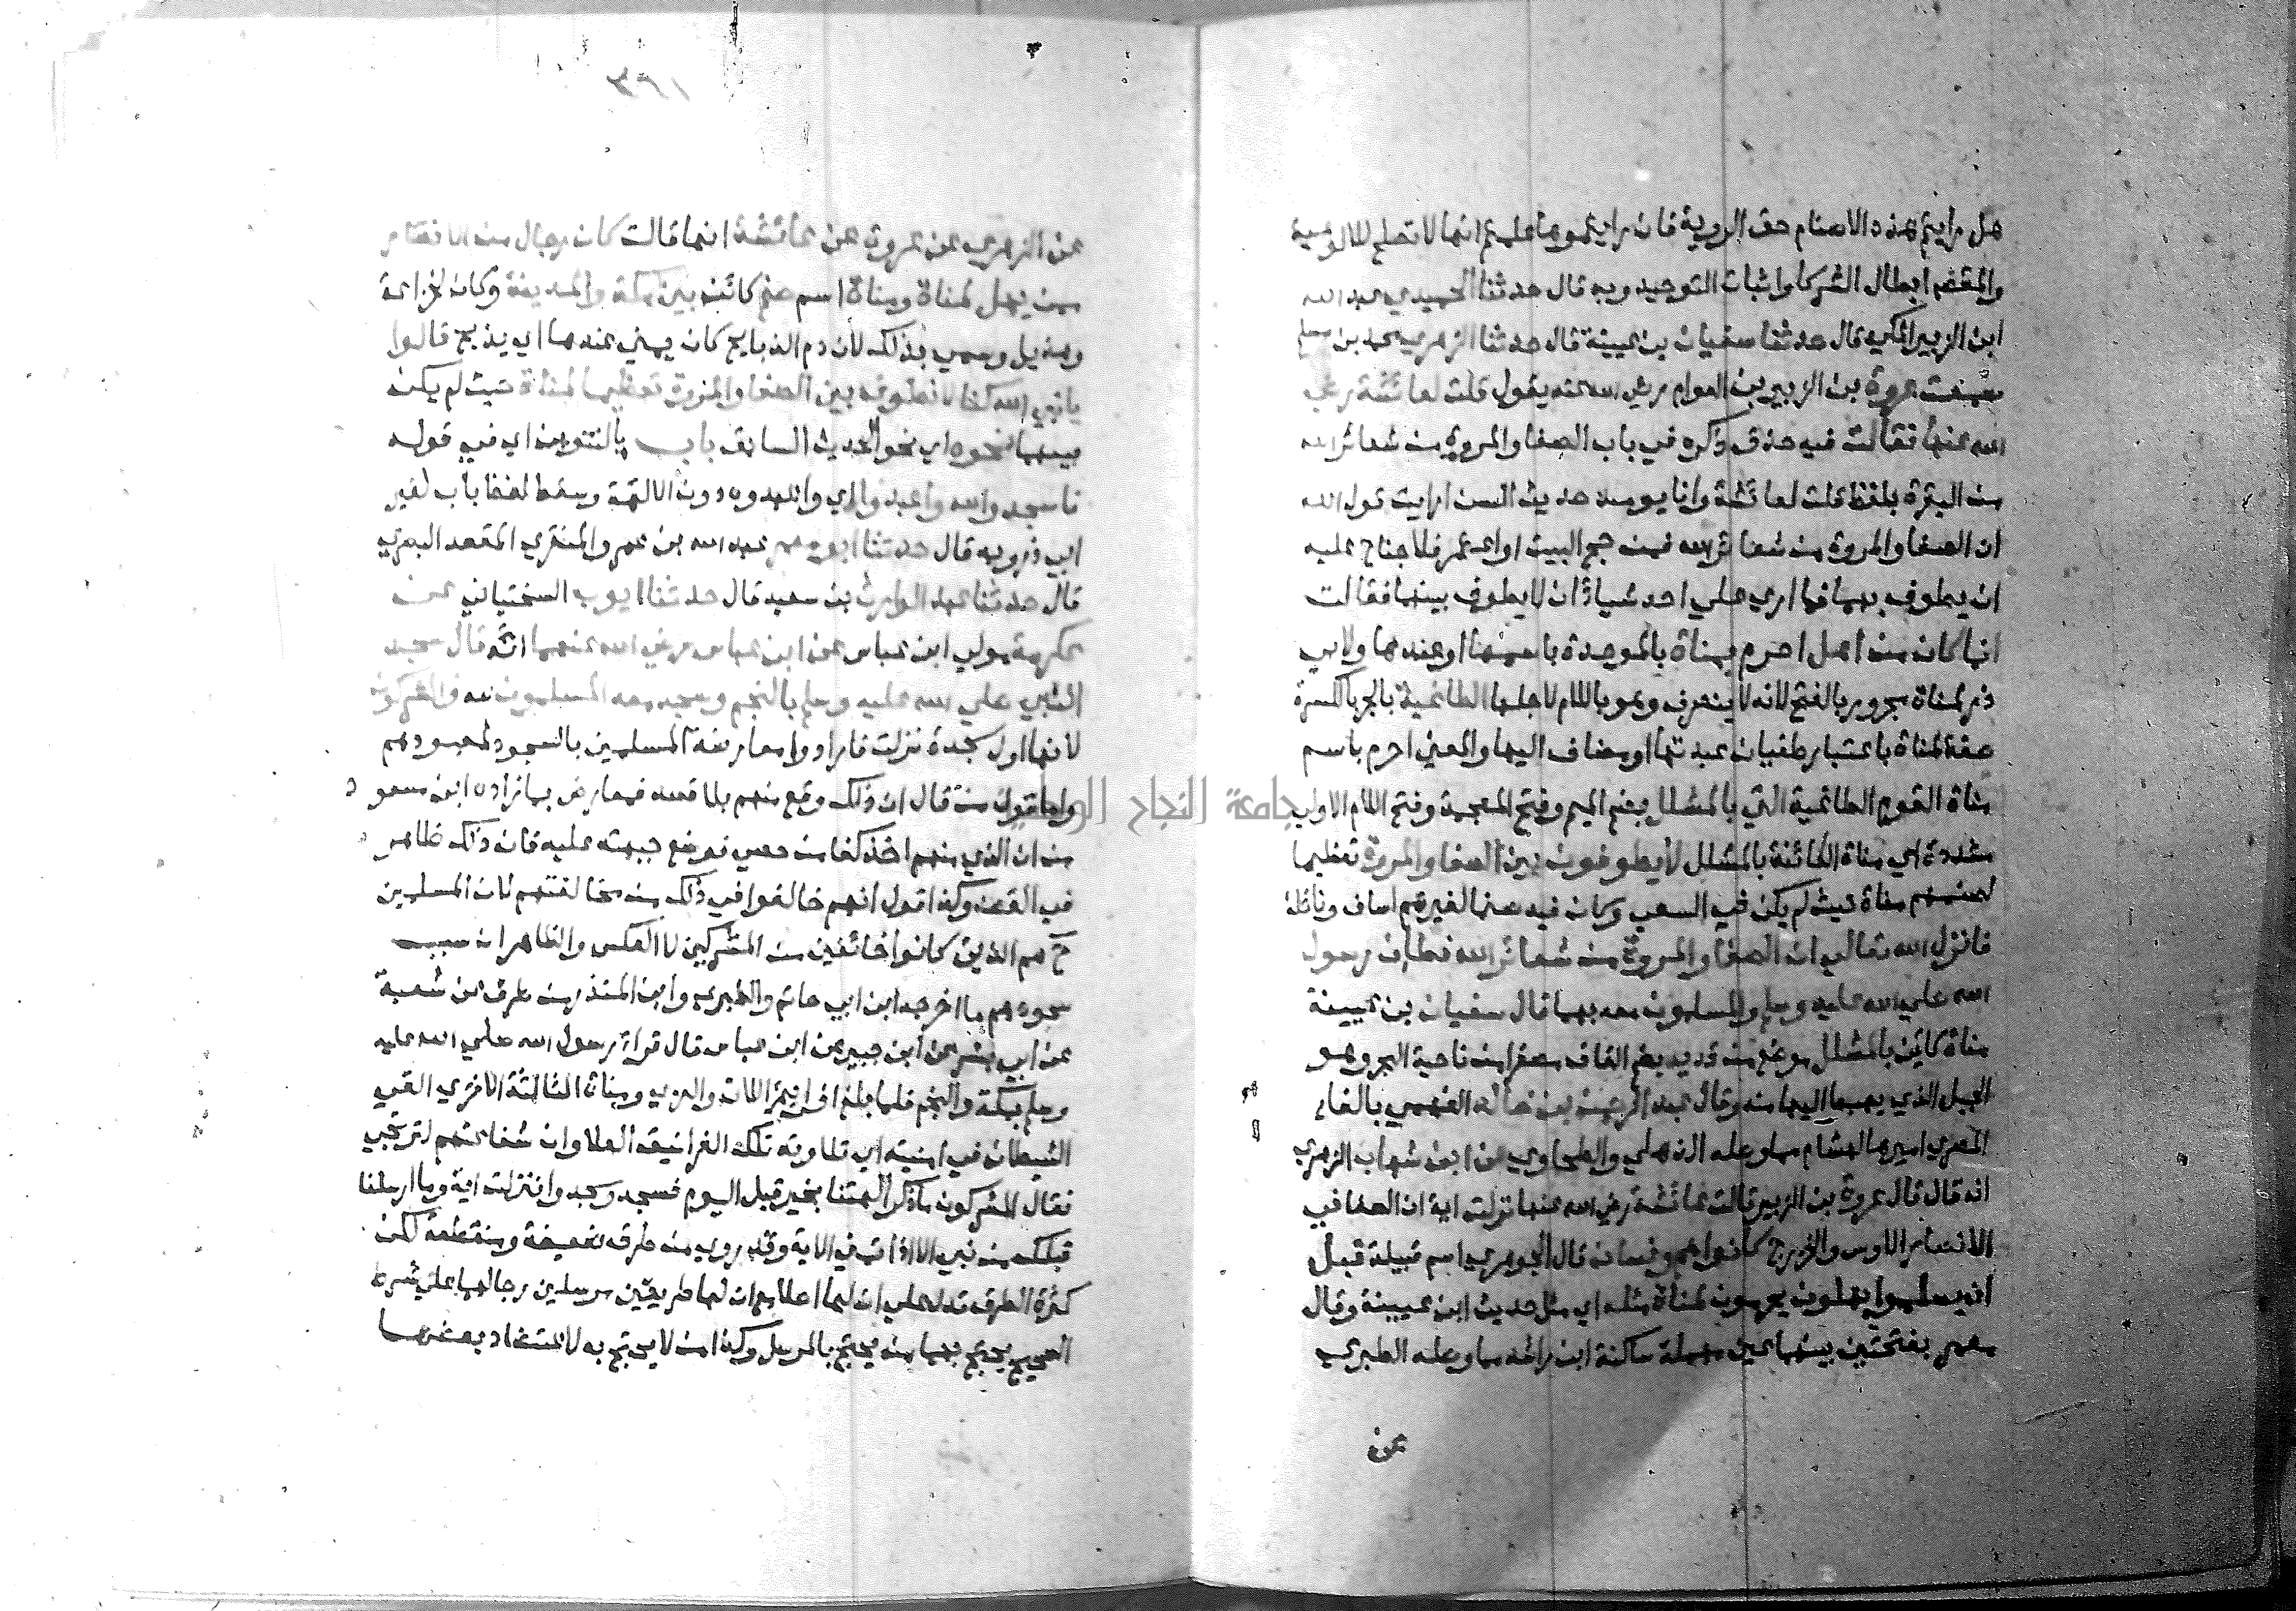 هل رايتم هذه الاصنام حق الروية فان رايتموها علمتم انها لا تصلح للالوهية
والمقصد ابطال الشركا واثبات التوحيد وبه قال حدثنا الحميدي عبد الله
ابن الزبير المكي قال حدثنا سفيان بن عيينة قال حدثنا الزهري محمد بن مسلم
سمعت عروة بن الزبير بن العوام رضي الله عنه يقول قلت لعائشة رضي
الله عنها فقالت فيه حذف ذكره في باب الصفا والمروة من شعائر الله
من البقرة بلفظ قلت لعائشة وانا يومئذ حديث السن ارايت قول الله
ان الصفا والمروة من شعائر الله فمن حج البيت او اعتمر فلا جناح عليه
ان يطوف بهما فما اري علي احد شياء ان لا يطوف بينهما فقالت
انما كان من اهل احرم بمناة بالموحدة باسمها او عندها ولابي
ذر لمناة مجرور بالفتح لانه لا ينصرف وهو باللام لاجلها الطاغية بالجر بالكسرة
صفة لمناة باعتبار طغيان عبدتها او مضاف اليها والمعني احرم باسم
مناة القوم الطاغية التي بالمشلل بضم الميم وفتح المعجمة وفتح اللام الاولي
مشددة اي مناة الكائنة بالمشلل لا يطوفون بين الصفا والمروة تعظيما
لصنمهم مناة حيث لم يكن في السعي وكان فيه صنما لغيرهم اساف ونائلة
فانزل الله تعالي ان الصفا والمروة من شعائر الله فطاف رسول
الله صلي الله عليه وسلم والمسلمون معه بهما قال سفيان بن عيينة
مناة كائن بالمشلل موضع من قديد بضم القاف مصغرا من ناحية البحر وهو
الجبل الذي يهبط اليها منه وقال عبد الرحمن بن خالد الفهمي بالفاء
المصري اميرها لهشام مما وصله الذهلي والطحاوي عن ابن شهاب الزهري
انه قال قال عروة بن الزبير قالت عائشة رضي الله عنها نزلت اية ان الصفا في
الانصار الاوس والخزرج كانوا هم وغسان قال الجوهري اسم قبيلة قبل
ان يسلموا يهلون يحرمون لمناة مثله اي مثل حديث ابن عيينة وقال
معمر بفتحتين بينهما عين مهملة ساكنة ابن راشد مما وصله الطبري
عن
٣٦١
عن الزهري عن عروة عن عائشة انها قالت كان رجال من الانصار
ممن يهل لمناة ومناة اسم صنم كائن بين مكة والمدينة وكان لخزاعة
وهذيل وسمي بذلك لان دم الذبايح كان يمني عندها اي يذبح قالوا
يا نبي الله كنا لا نطوف بين الصفا والمروة تعظيما لمناة حيث لم يكن
بينهما نحوه اي نحو الحديث السابق باب بالتنوين اي في قوله
فاسجدوا لله واعبدوا اي واعبدوه دون الالهة وسقط لفظ باب لغير
ابي ذر وبه قال حدثنا ابو معمر عبد الله بن عمرو المنقري المقعد البصري
قال حدثنا عبد الوارث بن سعيد قال حدثنا ايوب السختياني عن
عكرمة مولي ابن عباس عن ابن عباس رضي الله عنهما انه قال سجد
النبي صلي الله عليه وسلم بالنجم وسجد معه المسلمون لله والمشركون
لانها اول سجدة نزلت فارادوا معارضة المسلمين بالسجود لمعبودهم
واما قول من قال ان ذلك وقع منهم بلا قصد فمعارض بما زاده ابن مسعود
من ان الذي منهم اخذ كفا من حصي فوضع جبهته عليه فان ذلك ظاهر
في القصد وكذا قول انهم خالفوا في ذلك من مخالفتهم لان المسلمين
ح هم الذين كانوا خائفين من المشركين لا العكس والظاهر ان سبب
سجودهم ما اخرجه ابن ابي حاتم والطبري وابن المنذر من طرق عن شعبة
عن ابي بشر عن ابن جبير عن ابن عباس قال قراء رسول الله صلي الله عليه
وسلم بمكة والنجم فلما بلغ افرايتم اللات والعزي ومناة الثالثة الاخري القي
الشيطان في امنيته اي تلاوته تلك الغرانيق العلا وان شفاعتهم لترتجي
فقال المشركون ما ذكر الهتنا بخير قبل اليوم فسجد وسجدوا فنزلت اية وما ارسلنا
قبلك من نبي الا اذا تمني الاية وقد روي من طرق ضعيفة ومنقطعة لكن
كثرة الطرق تدل علي ان لها اصلا مع ان لها طريقين مرسلين رجالهما علي شرط
الصحيح يحتج بهما من يحتج بالمرسل وكذا من لا يحتج به لاعتضاد بعضها